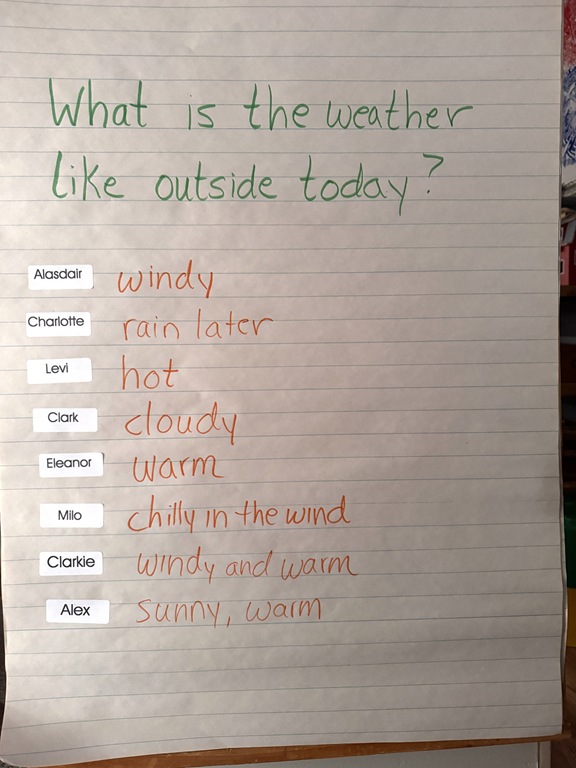 What is the weather
like outside today?
Alasdair windy
Charlotte rain later
Levi hot
Clark cloudy
Eleanor warm
Milo chilly in the wind
Clarkie windy and warm
Alex sunny, warm